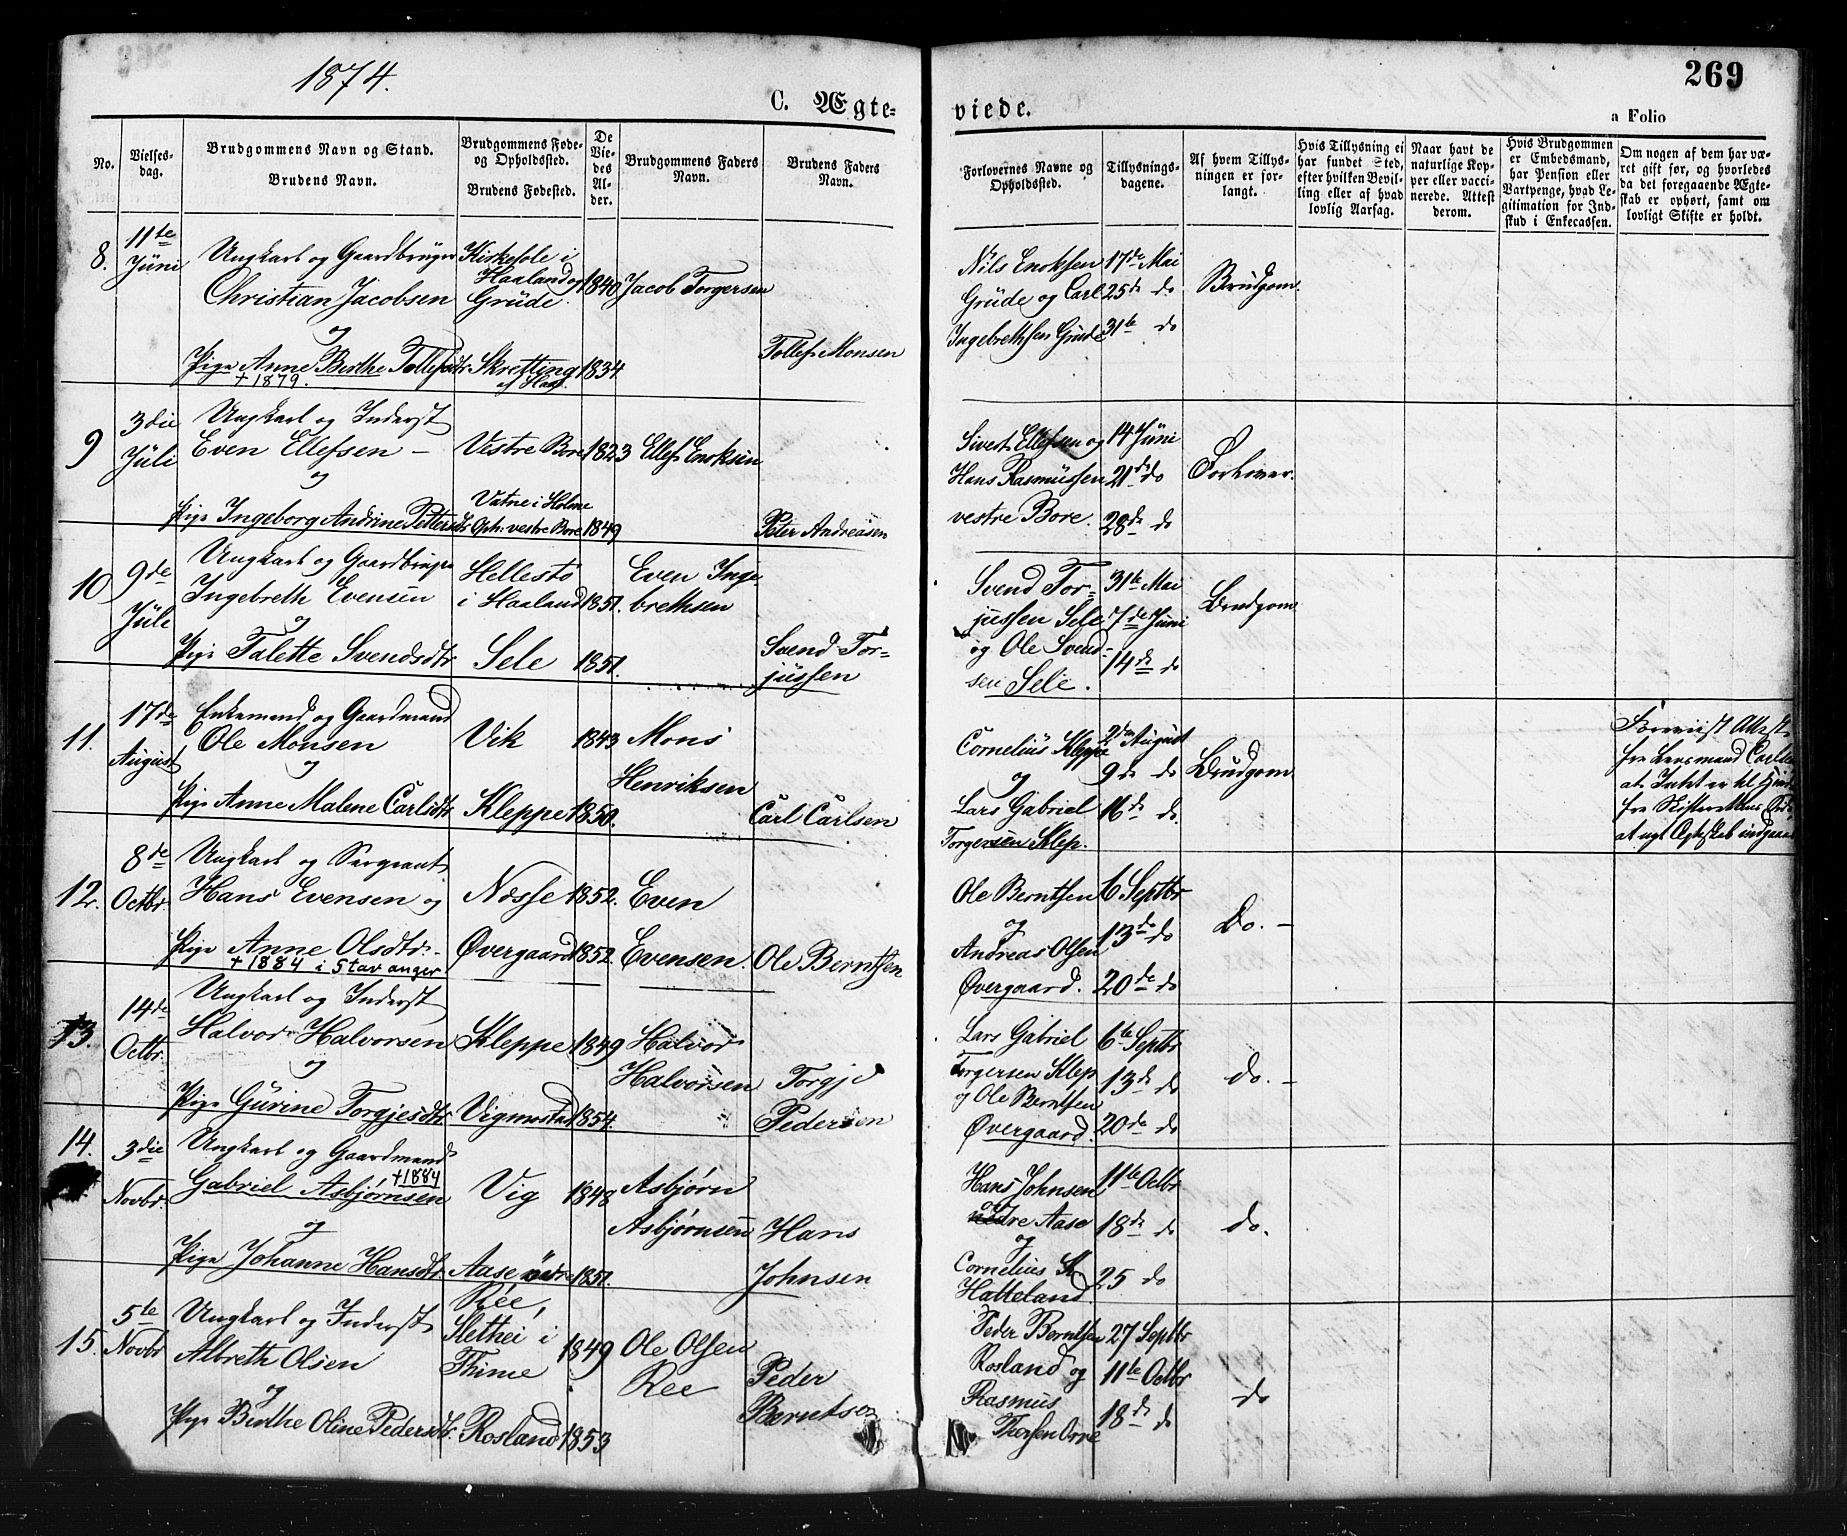 1874.
269
C. Ægte-
viede.
a Folio
No.
Vielses-
dag.
Brudgommens Navn og Stand.
Brudens Navn.
Brudgommens Føde-
og Opholdssted.
Brudens Fødested.
De
Vie-
des
Al-
der.
Brudgommens Faders
Navn.
Brudens Faders
Navn.
Forlovernes Navne og
Opholdssted.
Tillysnings-
dagene.
Af hvem Tillys-
ningen er for-
langt.
Hvis Tillysning ei
har fundet Sted,
efter hvilken Bevil-
ling eller af hvad
lovlig Aarsag.
Naar havt de
naturlige Kop-
per eller vacci-
nerede. Attest
derom.
Hvis Brudgommen
er Embedsmand,
har Pension eller
Vartpenge, hvad Le-
gitimation for Ind-
skud i Enkecassen.
Om nogen af dem har væ-
ret gift før, og hvorledes
da det foregaaende Ægte-
skab er ophørt, samt om
lovligt Skifte er holdt.
8.
11te
Jüni
Ungkarl og Gaardbrüger
Christian Jacobsen
og
Pige Anne Birthe Tollefsdtr
+ 1879.
Haaland og
Grüde.
Skretting
1840
1834
Jacob Torgersen
Tollef Monsen
Nils Enoksen
Grüde og Carl
Ingebrethsen Grüde
17de Mai
25de do
31te do
Brudgom.
9
3die
Jüli
Ungkarl og Inderst
Even Ellefsen
og
Pige Ingeborg Andrine Pettersdtr
Vestre Bore
Vatne i Holme
Oph. vestre Bore
1823
1849
Ellef Enoksen
Peter Andreasen
Sivert Ellefsen og
Hans Rasmüssen
vestre Bore.
14 Jüni
21de do
28de do
Forlover.
10
9de
Jüli
Ungkarl og Gaardbruger
Ingebreth Evensen
og
Pige Talette Svendsdtr
Hellestø
i Haaland
Sele
1851.
1851.
Even Inge-
brethsen
Svend Tor-
jüssen
Svend Tor-
jüssen Sele
og Ole Svend-
sen Sele.
31te Mai
7de Juni
14de do
Brudgom
11.
17de
August
Enkemand og Gaardmand
Ole Monsen
og
Pige Anne Malene Carlsdtr
Vik
Kleppe
1843
1850.
Mons
Henriksen
Carl Carlsen
Cornelius Kleppe
og
Lars Gabriel
Torgersen Klep.
2den August
9de do
16de do.
Brudgom
Foreviist Attest
fra Lensmand
at Intet er til Hind
fra Skifterettens Side
at nyt Ægteskab indgaaes
12.
8de
Octbr.
Ungkarl og Sergeant
Hans Evensen og
Pige Anne Olsdtr.
+ 1884 i Stavanger
Næsse
Øvergaard
1852.
1852.
Even
Evensen.
Ole Berntsen
Ole Berntsen
og
Andreas Olsen
Øvergaard.
6 Septbr
13de do
20de do
Do.
13.
14de
Octbr.
Ungkarl og Inderst
Halvor Halvorsen
og
Pige Gürine Torgjesdtr
Kleppe
Vigmostad
1849
1854.
Halvor
Halvorsen
Torgje
Pedersen
Lars Gabriel
Torgersen Klep
og Ole Berntsen
Øvergaard.
6te Septbr
13de do
20de do
do.
14.
3die
Novbr.
Ungkarl og Gaardmand
+1884
Gabriel Asbjørnsen
og
Pige Johanne Hansdtr
Vig
Aase
1848
1851.
Asbjørn
Asbjørnsen
Hans
Johnsen
Hans Johnsen
Aase
og
Cornelius
Hatteland.
11te Octbr
18de do
25 do
do.
15.
5te
Novbr
Ungkarl og Inderst
Albreth Olsen
og
Pige Birthe Oline Pedersdtr.
Rée,
Slethei i
Thime
Rosland
1849
1853
Ole Olsen
Ree
Peder
Berntsen
Peder Berntsen
Rosland og
Rasmus
Thorsen Orre
27 Septbr
11te Octbr
18de do
do